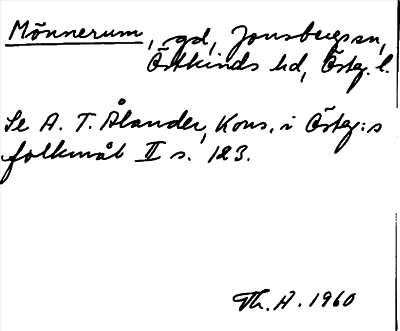 Mönnerum, gd, Jonsbergssn,
Östkinds hd, Östeg. l.
Se A. T. Ålander, Kons. i Östeg:s
folkmål II s. 123.
Th. A. 1960